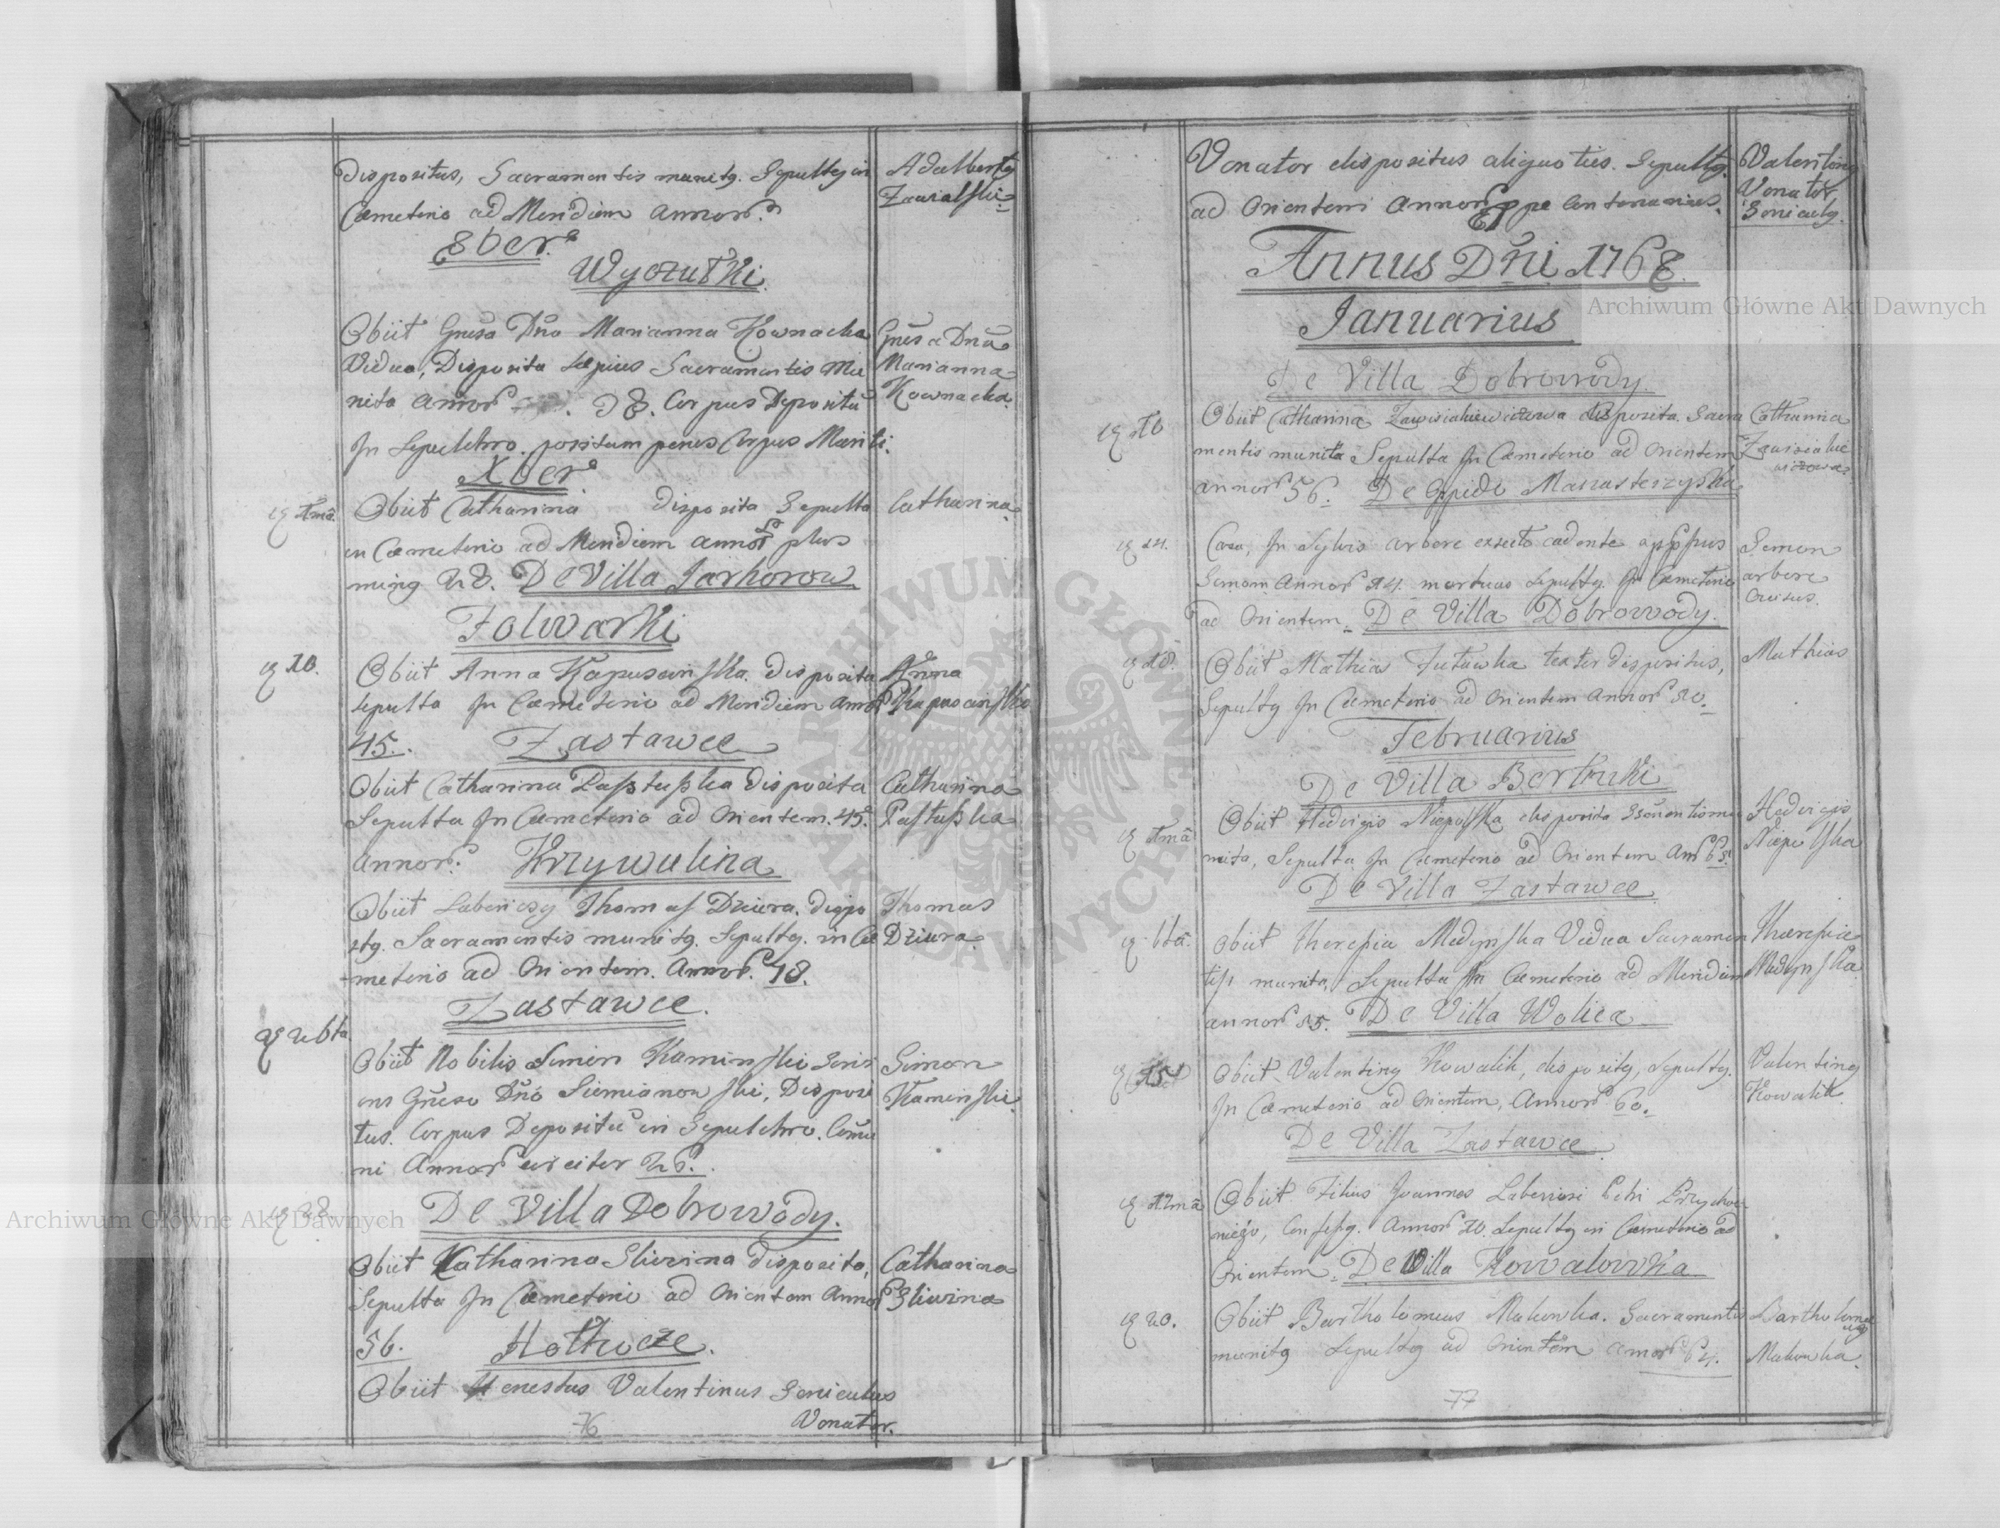 Dispositus, Sacramentis munitg. Sepultg in
Cæmeterio ad Meridiem annor.
Adalbertg
Zawialski
8ber
Wyczułki
Obiit Gnẽsa Dña Marianna Kownacka
Vidua, Disposita sæpius Sacramentis Mu
nita, annor 78. Corpus Depositũ
In Sepulchro positum penes Corpus Mariti.
Gnẽsa Dñã
Marianna
Kownacka.
Xber
ɋ 7mã
Obiit Catharina disposita Sepulta
in Cæmeterio ad Meridiem annor plus
ming 28. De Villa Jarhorow
Catharina
Folwarki
ɋ 10.
Obiit Anna Kapuscinska. disposita
sepulta In Cæmeterio ad Meridiem annor
45. Zastawce
Anna
Kapuscinska
Obiit Catharina Pastuszka disposita
Sepulta In Cæmeterio ad Orientem. 45.
Annor. Krzywulina
Catharina
Pastuszka
Obiit Thomas Dziura. dispo
stg. Sacramentis munitg. Sepultg. in Cæ
meterio ad Orientem. Annor. 48.
Thomas
Dziura
Zastawce.
ɋ 26ta
Obiit Nobilis Simon Kaminski
ens Gñeso Dño Siemianowski, Disposi
tus. Corpus Depositũ in Sepulchro. Comũ
ni Annor circiter 26.
Simon
Kaminski
ɋ 28
De Villa Dobrowody.
Obiit Catharina Sliwina disposita,
Sepulta In Cæmeterio ad Orientem Annor
56. Hołhocze.
Catharina
Sliwina
Obiit Honestus Valentinus Seniculus
Venator.
76
Venator dispositus aliquoties. Sepultg.
ad Orientem Annor ppe Centenarius.
Valenting
Venator
Seniculg.
Annus Dñi 1768.
Januarius
De Villa Dobrowody
ɋ 10
Obiit Catharina Zawisiakiewiczowa disposita. Sacra
mentis munita Sepulta In Cæmeterio ad Orientem
annor 56. De Oppido Manasterzyska
Catharina
Zawisiakie
wiczowa
ɋ 14.
Casu, In Sylvis arbore exsecto cadente oppssus
Semon Annor 14 mortuus Sepultg. In Cæmeterio
ad Orientem. De Villa Dobrowody.
Semon
arbore
ɋ 18.
Obiit Mathias textor dispositus,
Sepultg In Cæmeterio ad Orientem Annor 50.
Mathias
Februarius
De Villa Berłuki
ɋ 7mã
Obiit Hedvigis disposita
nita, Sepulta In Cæmeterio ad Orientem Ann 65.
De Villa Zastawce
Hedvigis
ɋ 6ta.
Obiit Theresia Medynska Vidua Sacramen
tis munita, Sepulta In Cæmeterio ad Meridiem
annor 55. De Villa Wolica
Theresia
Medynska
ɋ 15
Obiit Valenting Kowalik, dispositg, Sepultg.
In Cæmeterio ad Orientem, Annor 60.
Valenting
Kowalik
De Villa Zastawce
ɋ 17mã
Obiit Filius Joannes Petri
Annor 10. Sepultg in Cæmeterio ad
Orientem. De Villa Kowalowka
ɋ 20.
Obiit Bartholomeus Makowka. Sacramentis
munitg Sepultg ad Orientem annor 64.
Bartholome
ug
Makowka
77
Archiwum Główne Akt Dawnych
Archiwum Główne Akt Dawnych
ARCHIWUM GŁÓWNE
AKT DAWNYCH